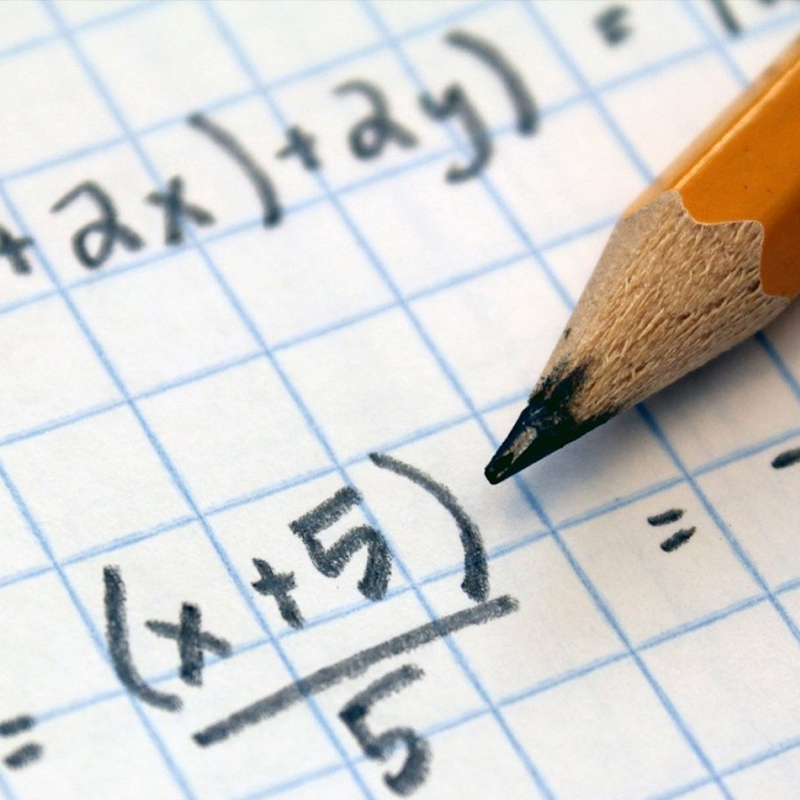 +2x)+2y) =
= (x+5)/5 =